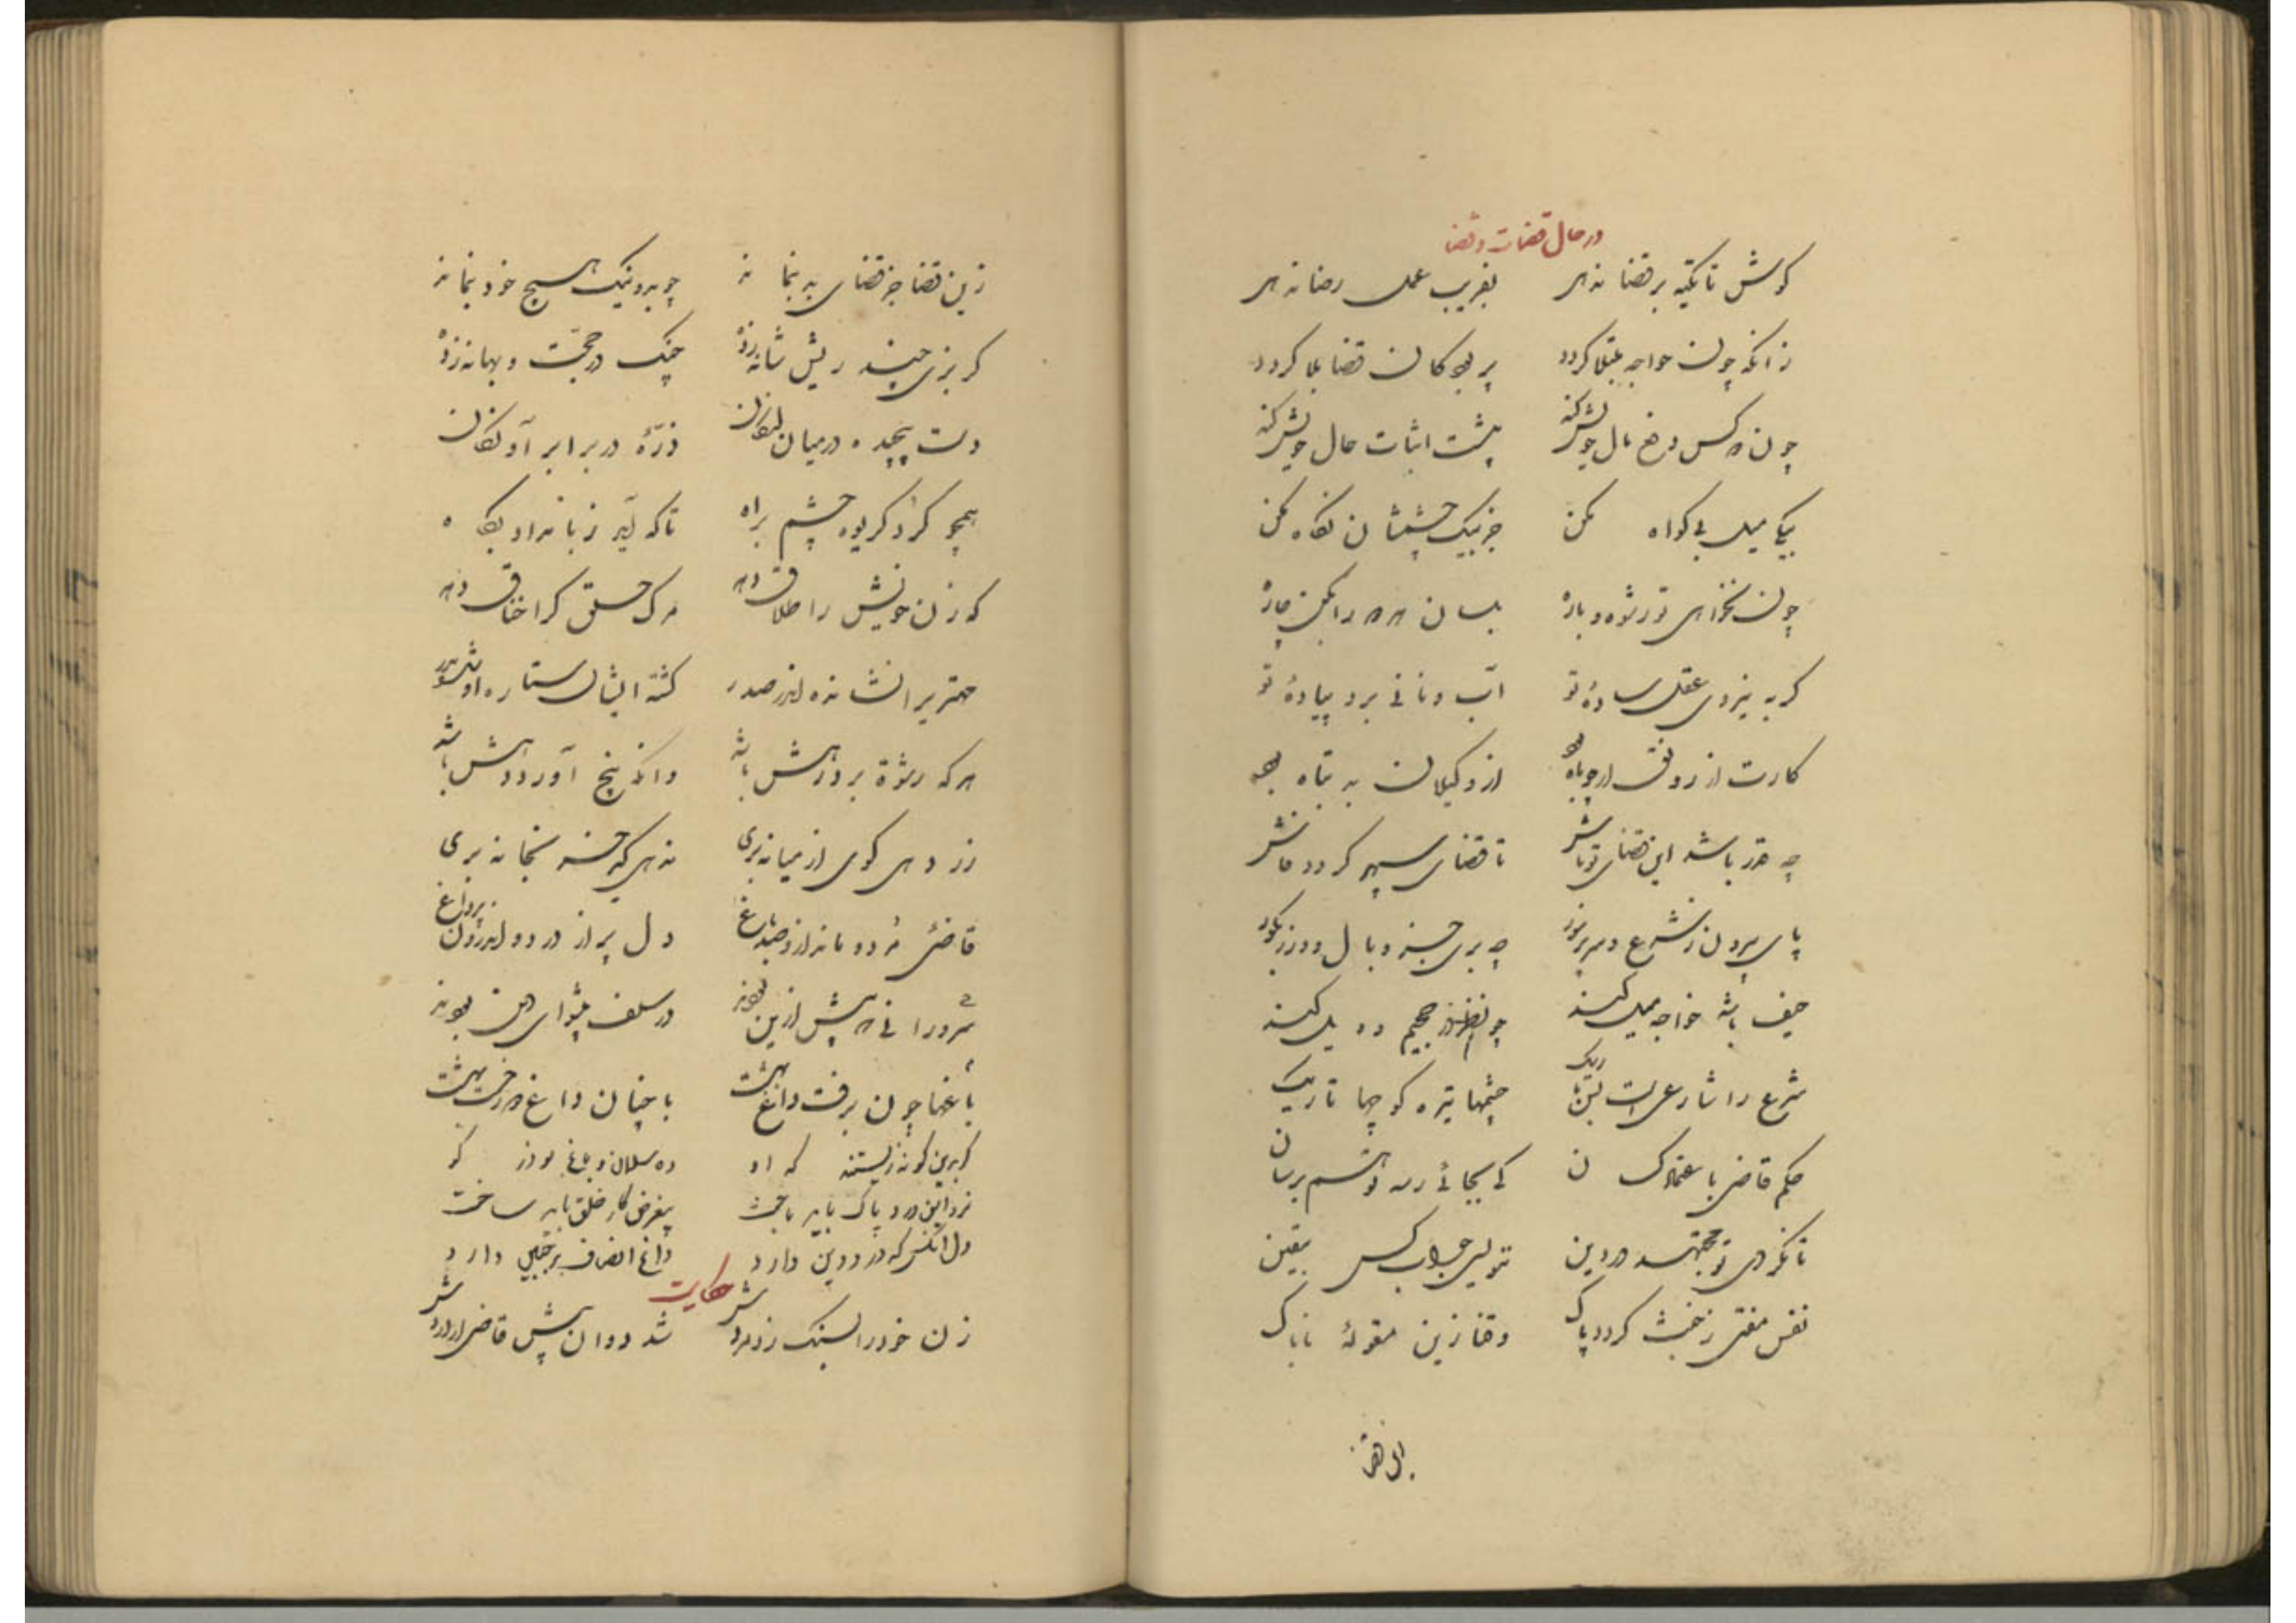 در حال قضات و قضا
کوش تا تکیه بر قضا ندهی بفریب عمل رضا ندهی
زانکه چون خواجه مبتلا کردد پر بود کان قضا بلا کردد
چون هر کس دفع مال خویش کند پیشت اثبات حال خویش کند
میل بی کواه مکن جز بیک چشمشان نکاه مکن
چون نخواهی تو رشوه و پاره بلسان همه را بکن چاره
کر به یزدی عقل ساده تو آب و نانی برد پیاده تو
کارت از رونق ار چو ماه بود از وکیلان بد تباه بود
چه قدر باشد این قضای تو باش تا قضای سپهر کردد فاش
پای بیرون ز شرع و سر پر زور چه بری جز وبال و وزر بکور
حیف باشد خواجه میل کند چون نظر در جحیم و ویل کند
شرع را شارعیست بس باریک چشمها تیره کوچها تاریک
حکم قاضی باعتماد کسان کی بجائی رسد تو هم برسان
تا نکردی تو مجتهد در دین ننویسی جواب کس بیقین
نفس مفتی ز خبث کردد پاک وقفا زین مقوله ناپاک
زین قضا جز قضای بد بنماند چو بد و نیک هیچ خود بنماند
کربزی چند ریش شانه زده چنک در حجت و بهانه زده
دست پیچیده در میان لنکان ذره در برابر آونکان
همچو کرد کریوه چشم براه تا که آید ز بامداد پکاه
که زن خویش را طلاق دهد مرک حلق کرا خناق دهد
مهتری را نشانده اندر صدر کشته ایشان ستاره او شده بدر
هر که رشوه برد زهش باشد وانکه پنج آورد دهش باشد
زر دهی کوی از میانه بری ندهی کی خسته بخانه بری
قاضی مرد و ماند ازو صد باغ دل پر از درد و اندرون پر داغ
سرورانی که پیش ازین بودند در سلف پیشوای دین بودند
باغها چون برفت داغ بهشت با چنان داغ در بهشت
کر برین کونه زیستند که او ده سلمان و باغ بوذر کو
نرد این درد پاک باید باخت بیغرض کار خلق باید ساخت
دل آنکس که درد دین دارد داغ انصاف بر جبین دارد
حکایت
زن خود را بسنک زد مردش شد دوان پیش قاضی از دردش